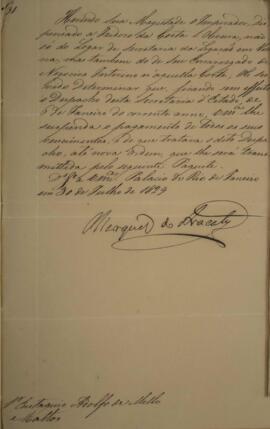 Havendo Sua Magestade o Imperador, dis
pensado a Isidoro da Costa e Oliveira, não
só do Lugar de Secretario da Legação em Vi
enna, mas tambem do de Seu Encarregado de
Negocios interino n'aquella Corte, He ser
vido determinar que, ficando sem effeito
o Despacho desta Secretaria d'Estado, de
de Janeiro do corrente anno, se lhe
suspenda o pagamento de todos os seus
vencimentos, de que tratava o dito Despa
cho, até nova Ordem, que lhe será trans
mittida pelo seguinte Paquete.
Palacio do Rio de Janeiro
em 30 de Julho de 1829
Marquez de Aracaty
Sr. Eustaquio Adolfo de Mello
e Mattos